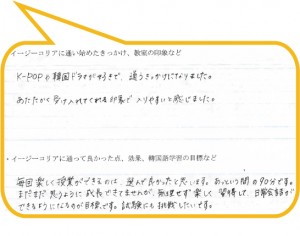 イージーコリアに通い始めたきっかけ、教室の印象など
K-POPや韓国ドラマがすきで、通うきっかけになりました。
あたたかく受け入れてくれる印象で入りやすいと感じました。
・イージーコリアに通って良かった点、効果、韓国語学習の目標など
毎回楽しく授業ができるのは、選んで良かったと思います。あっという間の90分です。
まだまだ思うように成長できてませんが、無理せず楽しく習得して、日常会話が
できるようになるのが目標です。試験にも挑戦したいです。